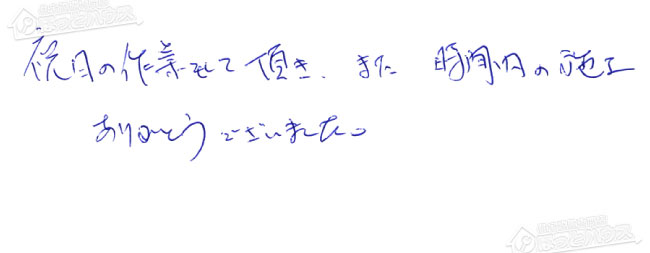 祝日の作業をして頂き、また 時間内の施工
ありがとうございました。